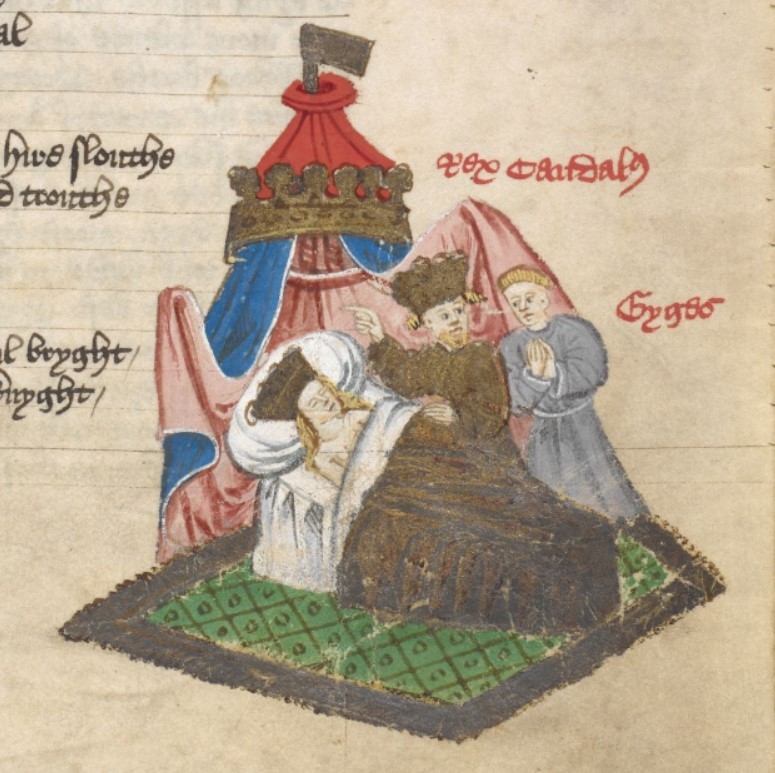 al
hire slouthe
d trouthe
rex Candaly
Gyges
al bryght /
knyght /